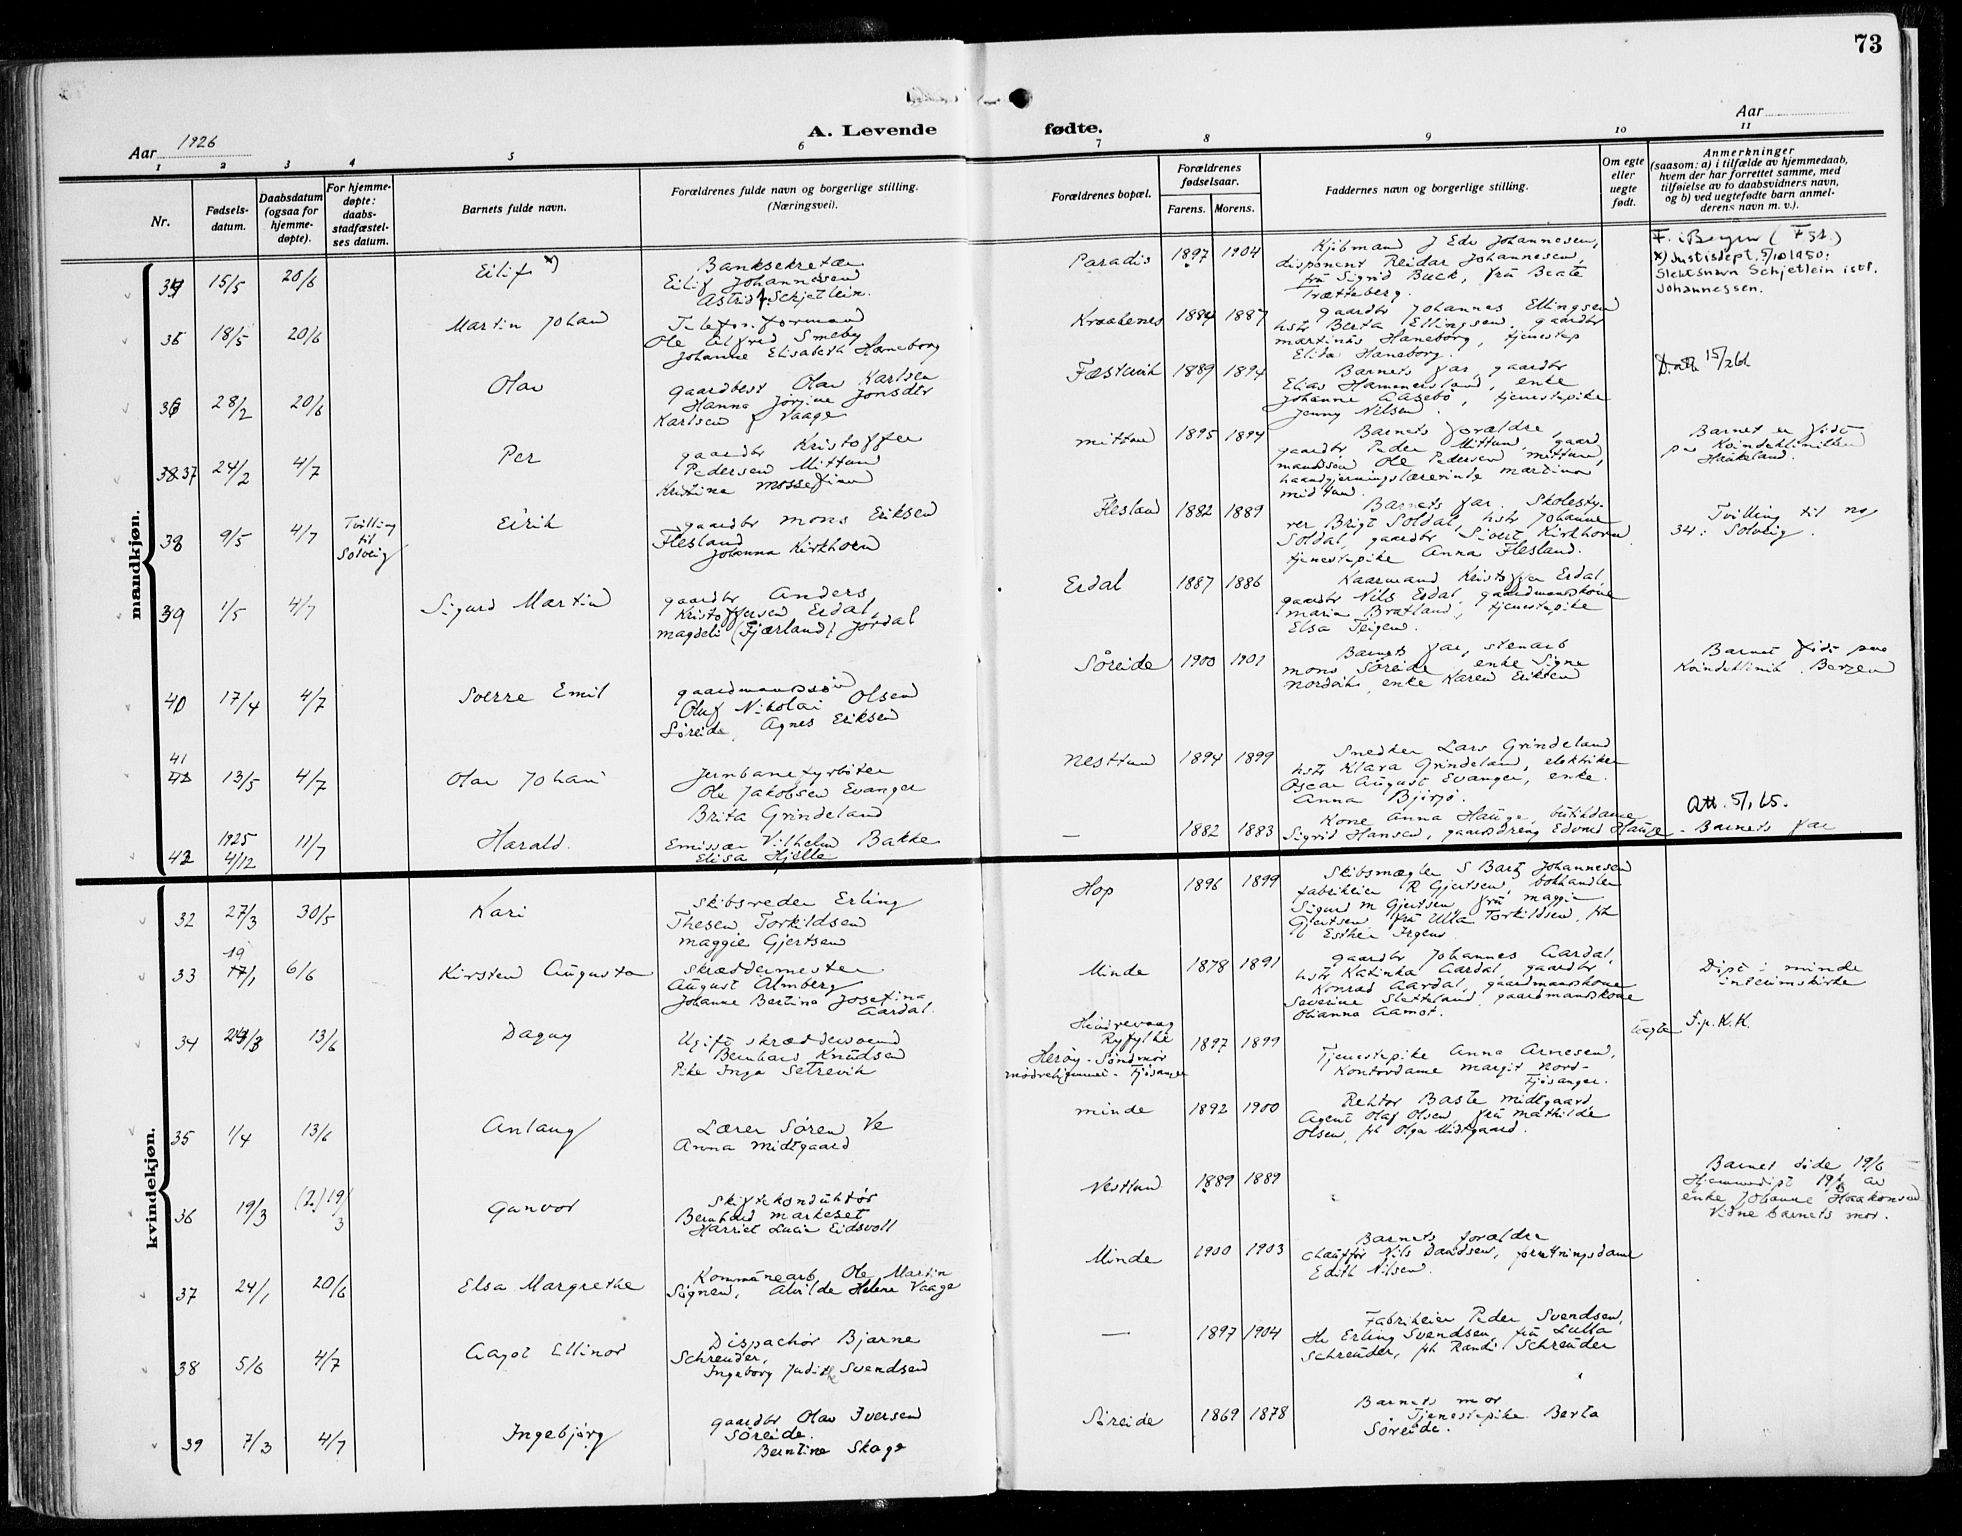 73
A. Levende fødte.
Aar 1926
Aar
1 2 3 4 5 6 7 8 9 10 11
Nr.
Fødsels-
datum.
Daabsdatum
(ogsaa for
hjemme-
døpte).
For hjemme-
døpte:
daabs-
stadfæstel-
ses datum.
Barnets fulde navn.
Forældrenes fulde navn og borgerlige stilling.
(Næringsvei).
Forældrenes bopæl.
Forældrenes
fødselsaar.
Farens. Morens.
Faddernes navn og borgerlig stilling.
Om egte
eller
uegte
født.
Anmerkninger
(saasom: a) i tilfælde av hjemmedaab,
hvem der har forrettet samme, med
tilføielse av to daabsvidners navn,
og b) ved uegtefødte barn anmel-
derens navn m. v.).
mandkjøn.
34 15/5 20/6 Eilif x)
Banksekretær
Eilif Johannesen
Astrid f. Schjetlein.
Paradis 1897 1904
Kjøbmand J Edv Johannesen,
disponent Reidar Johannesen,
frü Sigrid Buck, frü Beate
Trætteberg.
F. i Bergen
x) Justisdept. 5/10 1950:
Slektsnavn Schjetlein istf.
Johannessen.
35 18/5 20/6 Martin Johan
Telefonformand
Ole Alfred Smeby
Johanne Elisabeth Haneborg
Kraabenes 1884 1887
gaardbr Johannes Ellingsen
hstr Berta Ellingsen, gaardbr
martinüs Haneborg, tjenestep
Elida Haneborg.
36 28/2 20/6 Olav
gaardbest Olav Karlsen
Hanna Jørgine Jonsdtr
Karlsen f Vaage
1889 1894
Barnets far, gaardbr
Elias Hammersland, enke
Johanne Aasebø, tjenestepike
Jenny Nilsen.
15/2 61
37 24/2 4/7 Per
gaardbr Kristoffer
Pedersen Mittun
Kristine
mittun 1895 1894
Barnets forældre,
gaardbr Peder Mittun, gaard
mandssøn Ole Pedersen mittun,
haandgjerningslærerinde martina
midtun.
Barnet er født
paa Kvindeklinikken
Haukeland.
38 9/5 4/7
Tvilling
til
Solveig
Eirik
gaardbr mons Eriksen
Flesland
Johanna Kirkhorn
Flesland 1882 1889
Barnets far. Skolesty-
rer Brigt Soldal, hstr Johanne
Soldal, gaardbr Sivert Kirkhorn
tjenestepike Anna Flesland.
Tvilling til no
34: Solveig.
39 1/5 4/7 Sigurd Martin
gaardbr Anders
Kristoffersen Erdal,
magdeli (Fjærland) Jordal
Erdal 1887 1886
Kaarmand Kristoffer Erdal,
gaardbr Nils Erdal, gaardmandskone
maria Bratland, tjenestepike
Elsa Teigen.
40 17/4 4/7 Sverre Emil
gaardmandssøn
Oluf Nikolai Olsen
Søreide, Agnes Eriksen
Søreide 1900 1901
Barnets far, stenarb
mons Søreide, enke Signe
Nordvik, enke Karen Eriksen
Barnet født paa
Kvindeklinik. Bergen
41 13/5 4/7 Olav Johan
Jernbanefyrbøter
Ole Jakobsen Evanger
Brita Grindeland
Nesttun 1894 1899
Snedker Lars Grindeland
hstr Klara Grindeland, elektriker
Oscar August Evanger, enke
Anna Bjørjo.
Att. 5/1 65.
42 1925 4/12 11/7 Harald.
Emissær Vilhelm Bakke
Elisa Hjelle
— 1882 1883
Kone Anna Haüge, bütikdame
Sigrid Hansen, gaardsdreng Edvard Haüge - Barnets far
kvindekjøn.
32 27/3 30/5 Kari
skibsreder Erling
Thesen Torkildsen
maggie Gjertsen
Hop 1896 1899
Skibsmægler S Bart Johannesen
fabrikeier R Gjertsen, bokhandler
Sigurd M Gjertsen, frü maggie
Gjertsen, frü Ulla Torkildsen, frk
Esther Irgens.
33 19/1 6/6 Kirsten Augusta
skræddermester
August Almberg
Johanne Bertine Josefina
Aardal.
Minde 1878 1891
gaardbr Johannes Aardal,
hstr Katinka Aardal, gaardbr
Konrad Aardal, gaardmandskone
Severine Sletteland, gaardmandskone
Olianna Aamot.
Døpt i minde
interimskirke
34 13/6 Dagny
Ugift skræddersvend
Bernhard Knudsen
Pike Inga Setrevik
Ryfylke
Herøy - Søndmør
mødrehjemmet - Fjøsanger
1897 1899
Tjenestepike Anna Arnesen,
Kontordame margit Nord-
Fjøsanger.
uegte F.p.K.K.
35 1/4 13/6 Anlaug
Lærer Søren Ve
Anna Midtgaard
minde 1892 1900
Rektor Baste midtgaard,
Agent Olaf Olsen, frü mathilde
Olsen, frk Olga Midtgaard.
36 19/3 (2) 19/3 Gunvor
Skiftekonduktør
Bernhard markeset
Harriet Lucie Eidsvoll
Nesttun 1889 1889
Barnet døde 19/6
Hjemmedøpt av
enke Johanne Haakonsen
Vidne barnets mor.
37 24/1 20/6 Elsa Margrethe
Kommünearb. Ole Martin
Sognen, Alvilde Helene Vaage
Minde 1900 1903
Barnets forældre
Chauffør Nils Davidsen, forretningsdame
Edith Nilsen.
38 5/6 4/7 Aagot Ellinor
Dispachør Bjarne
Schreuder,
Ingeborg Judith Svendsen
— 1897 1904
Fabrikeier Peder Svendsen,
Hr Erling Svendsen, frü Lulla
Schreüder, frk Randi Schreüder
39 7/3 4/7 Ingebjørg
gaardbr Olav Iversen
Søreide.
Berntine Skage
Søreide 1869 1878
Barnets mor
Tjenestepike Berta
Søreide.